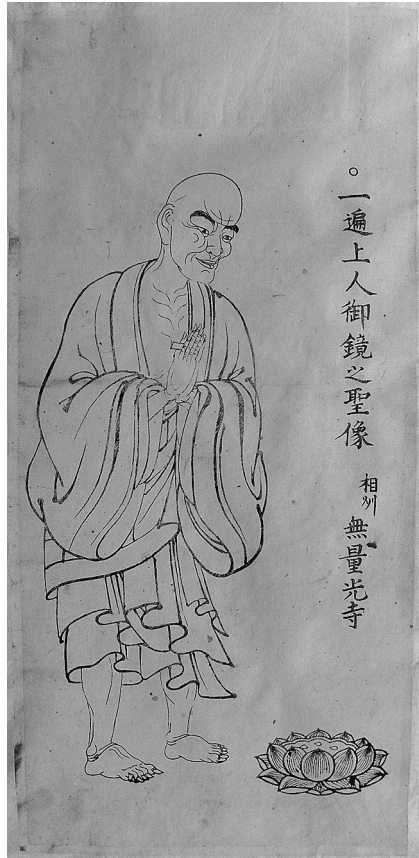 ○一遍上人御鏡之聖像
相州 無量光寺